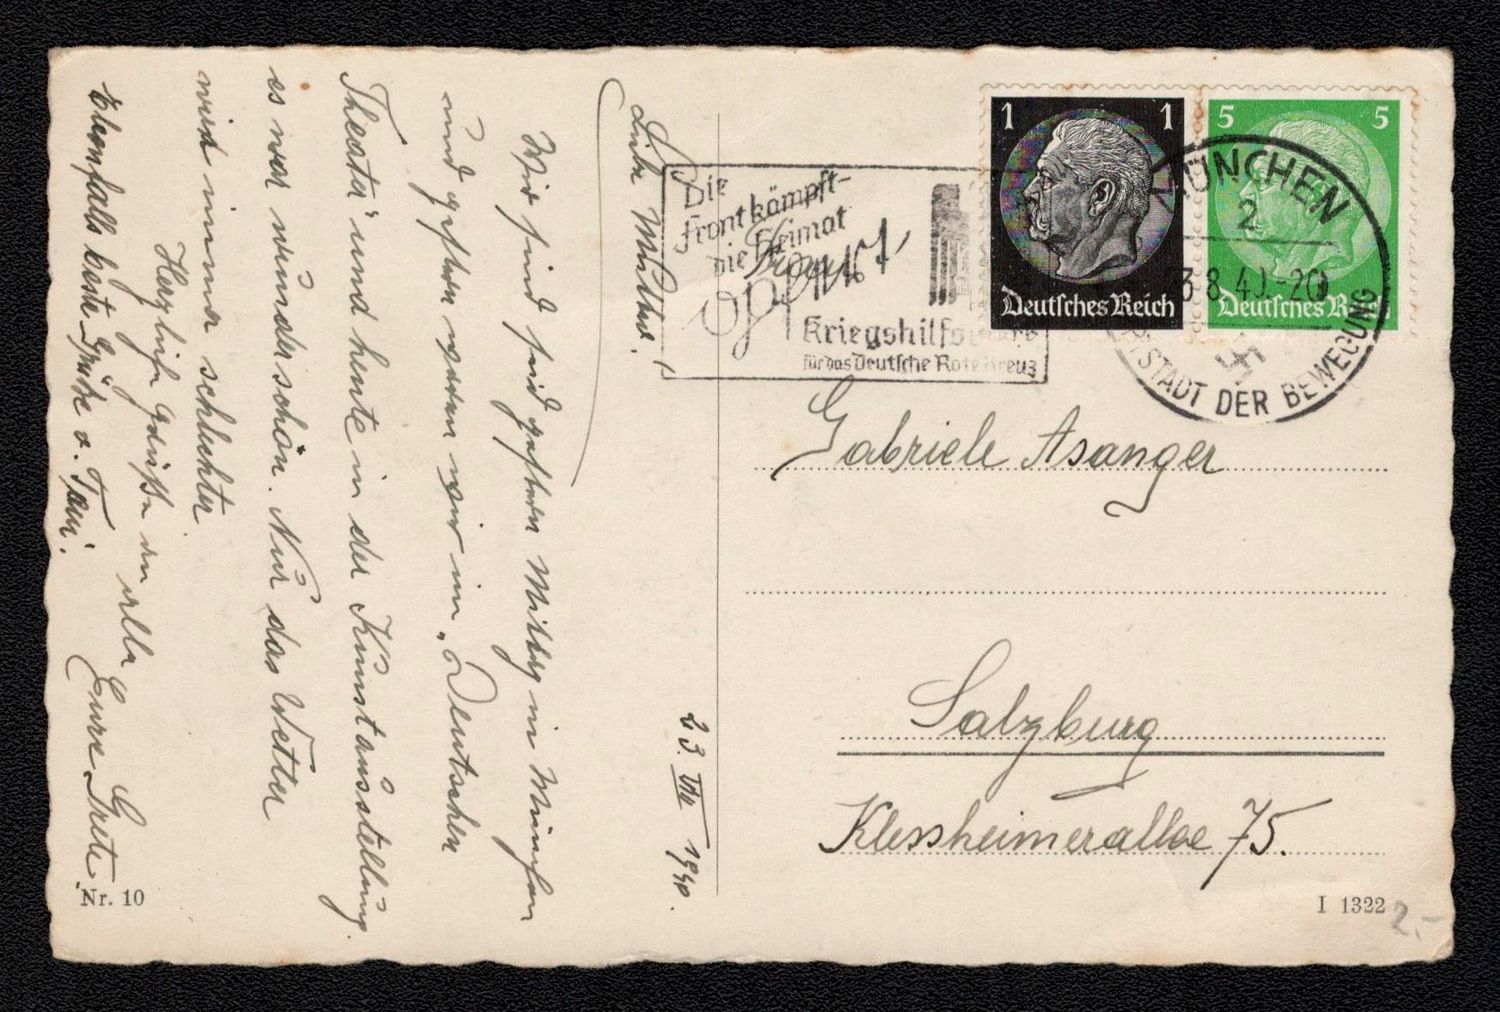 23 VIII 1940.
Liebe Mutter!
Wir sind seid gestern Mittag in München
und gestern waren wir im „Deutschen
Theater" und heute in der Kunstausstellung.
es war wunderschön. Nur das Wetter
wird immer schlechter
Herzliche Grüße an alle Eure Grete
Ebenfalls beste Grüße v. Toni.
Nr. 10
Die
Front kämpft-
die Heimat
opfert
Kriegshilfswerk
für das Deutsche Rote Kreuz
Franz
1 1
Deutsches Reich
5 5
Deutsches Reich
MÜNCHEN
2
23.8.40.-20
HAUPTSTADT DER BEWEGUNG
Gabriele Asanger
Salzburg
Klessheimerallee 75.
I 1322
2.-